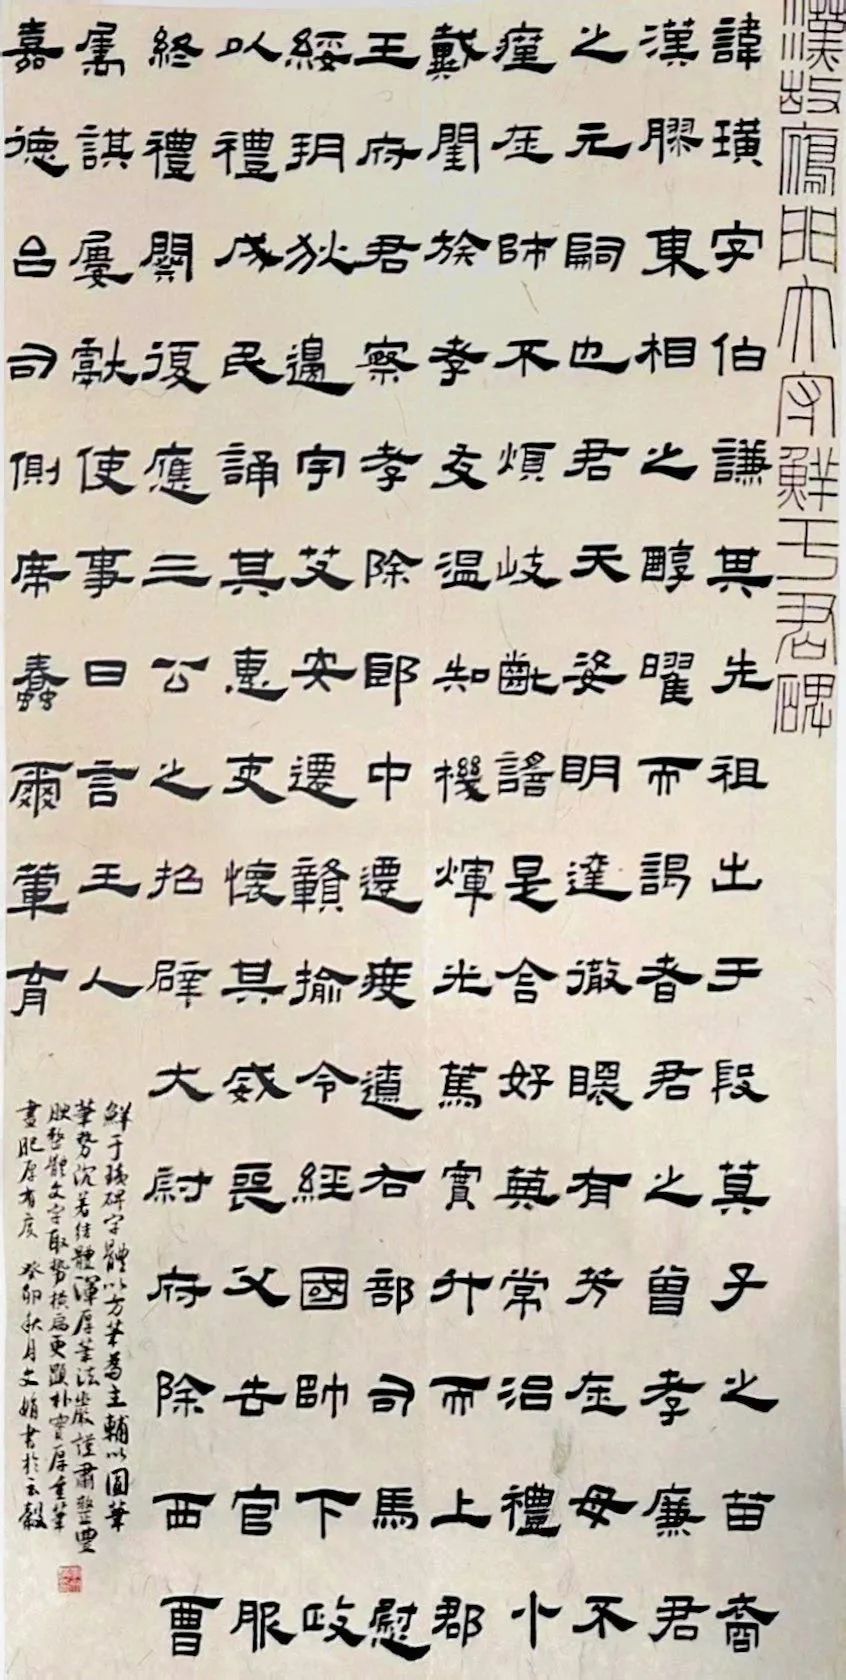 漢故鴈門太守鮮于君碑
諱璜字伯謙其先祖出于殷箕子之苗裔
漢膠東相之醇曜而謁者君之曾孝廉君
之元嗣也君天姿明達徹瞏有芳在母不
瘇在師不煩岐齔謠是含好典常治禮小
戴閨族孝友温知機煇光篤實升而上郡
王府君察孝除郎中遷度遼右部司馬慰
綏朔狄邊宇艾安遷贛揄令經國帥下政
以禮成民誦其惠吏懷其威喪父去官服
終禮闋復應三公之招辟大尉府除西曹
屬諆屢獻使事日言王人
嘉德台司側席蠢爾葷育
鮮于璜碑字體以方筆爲主輔以圓筆
筆勢沉着結體渾厚筆法嚴謹肅整豐
腴整體文字取勢橫扁更顯朴實厚重筆
畫肥厚有度 癸卯秋月文娟書於云穀